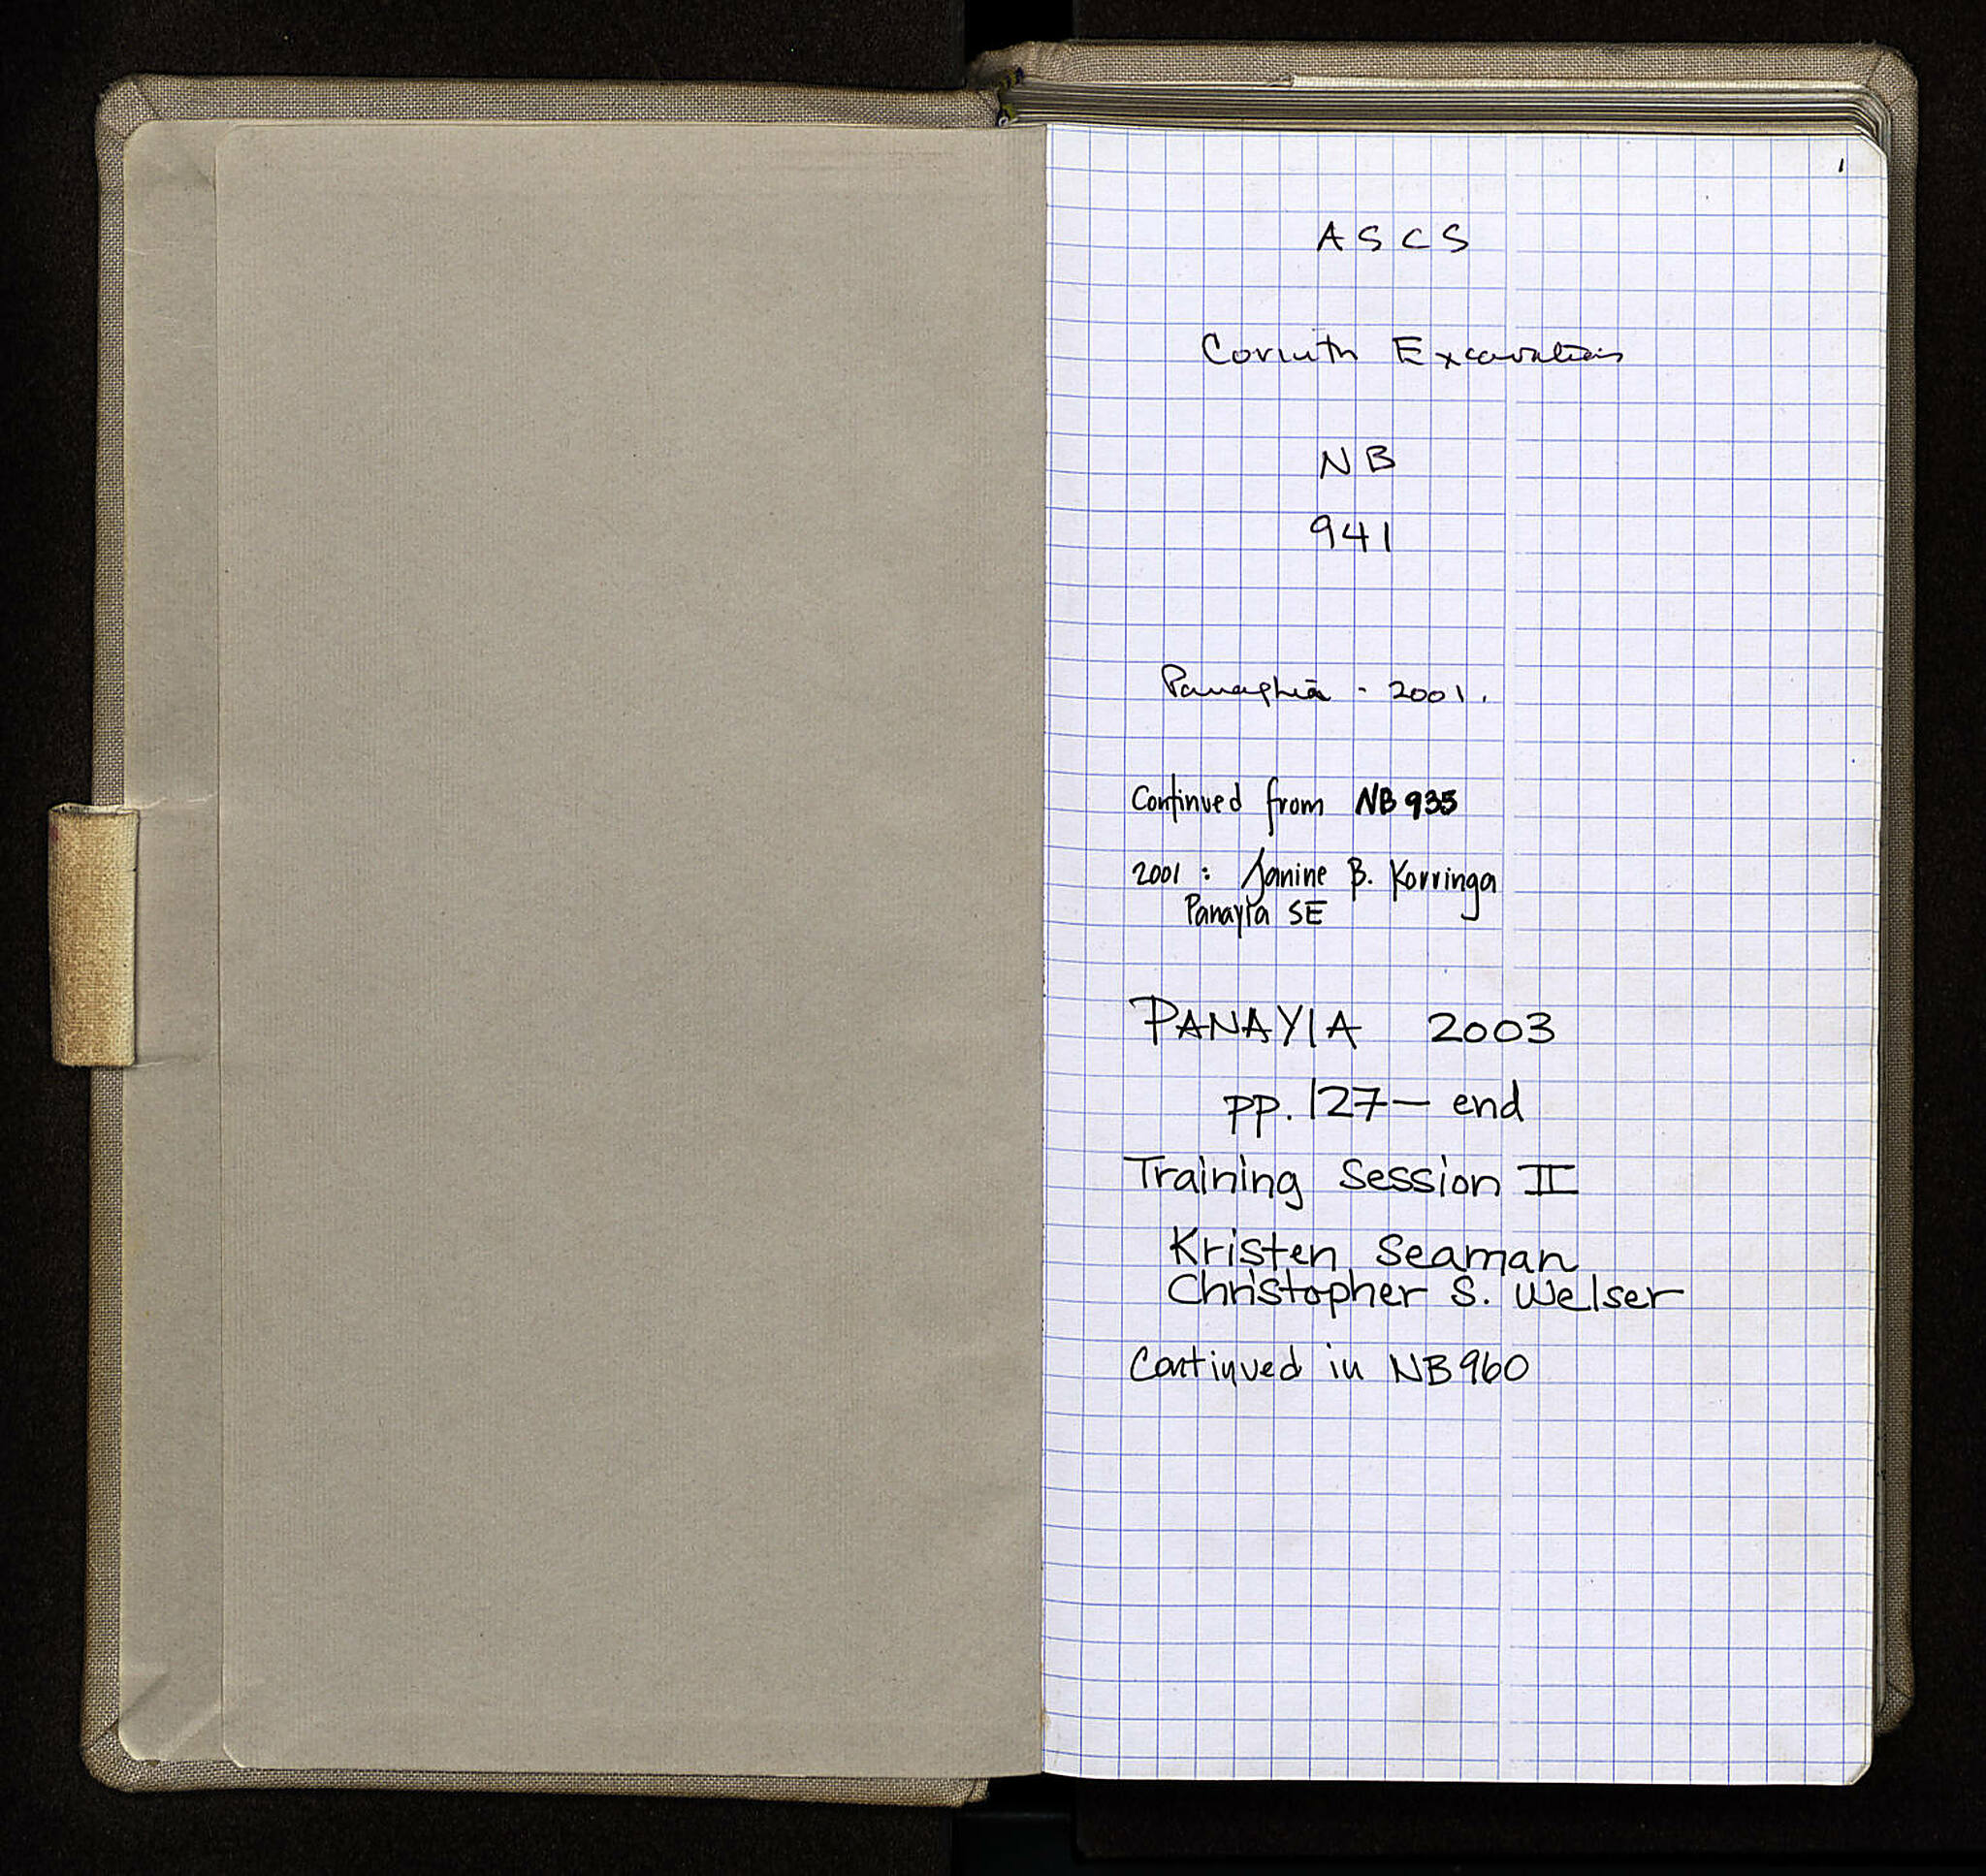 1
ASCS
Corinth Excavations
NB
941
Panaghia - 2001.
Continued from NB 935
2001 : Janine B. Korringa
Panayia SE
PANAYIA 2003
pp. 127 — end
Training Session II
Kristen Seaman
Christopher S. Welser
Continued in NB 960